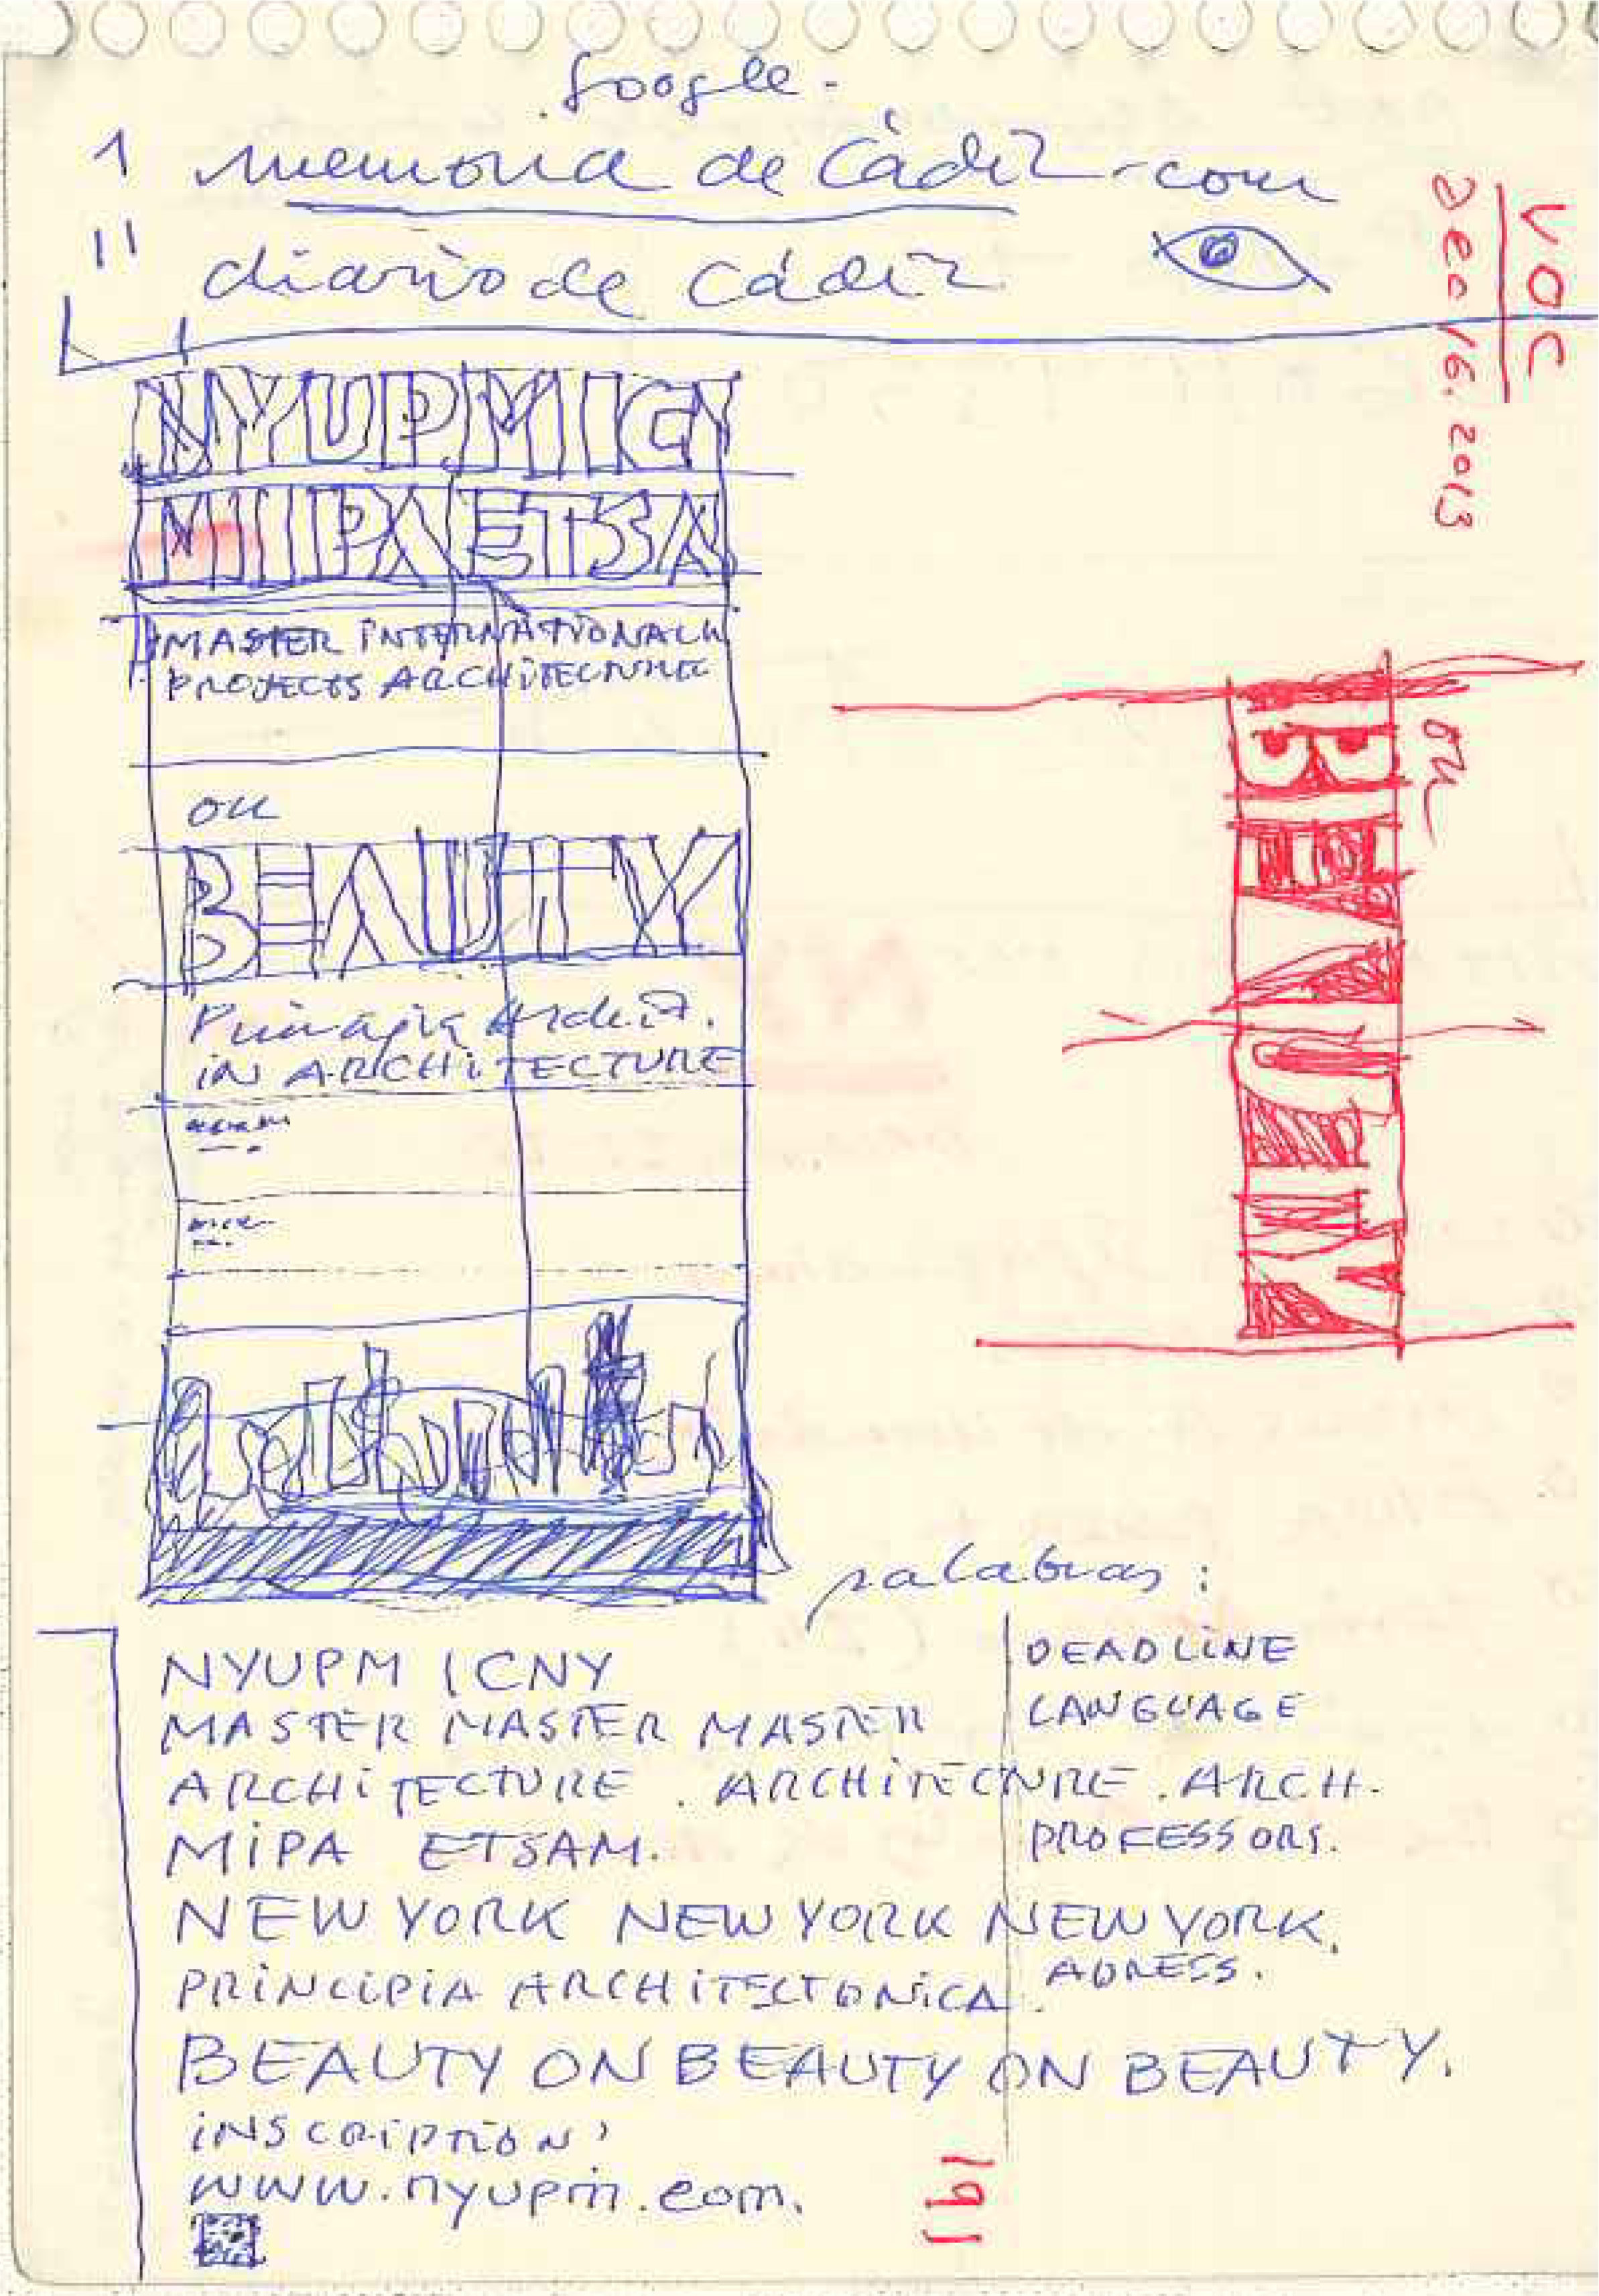 Google.
1 memoria de Cádiz.com
11 diario de Cádiz
VOC
Dec 16. 2013
NYUPMIC
MIPAETSA
MASTER INTERNATIONAL
PROJECTS ARCHITECTURE
ou
BEAUTY
IN ARCHITECTURE
ou
BEAUTY
palabras:
NYUPM ICNY
MASTER MASTER MASTER
ARCHITECTURE. ARCHITECTURE. ARCH.
MIPA ETSAM.
NEW YORK NEW YORK NEW YORK.
PRINCIPIA ARCHITECTONICA.
BEAUTY ON BEAUTY ON BEAUTY.
INSCRIPTION:
www.nyupm.com.
DEADLINE
LANGUAGE
PROFESSORS.
ADRESS.
191